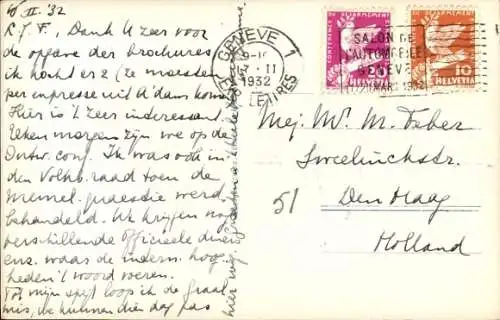 16 II '32
R.J.F., Dank U zeer voor
de opgave der brochures
ik kocht er 2 (ze moesten
per expresse uit A'dam komen)
Hier is 't zeer interessant.
Iederen morgen zijn we op de
Ontw. conf. Ik was ook in
den Volkb. raad toen de
Memel-quaestie werd
behandeld. We krijgen nog
verschillende officieele diners
enz. waar de intern. hoog-
heden 't woord voeren.
Tot mijn spijt loop ik de
mis, we kunnen die dag pas
hier weg.
GENÈVE 1
II
1932
LETTRES
CONFERENCE DU DESARMEMENT
HELVETIA
SALON DE
L'AUTOMOBILE
GENÈVE
MARS 1932
DESARMEMENT
10
HELVETIA
Mej. Mr. M. Faber
Sweelinckstr.
51
Den Haag
Holland